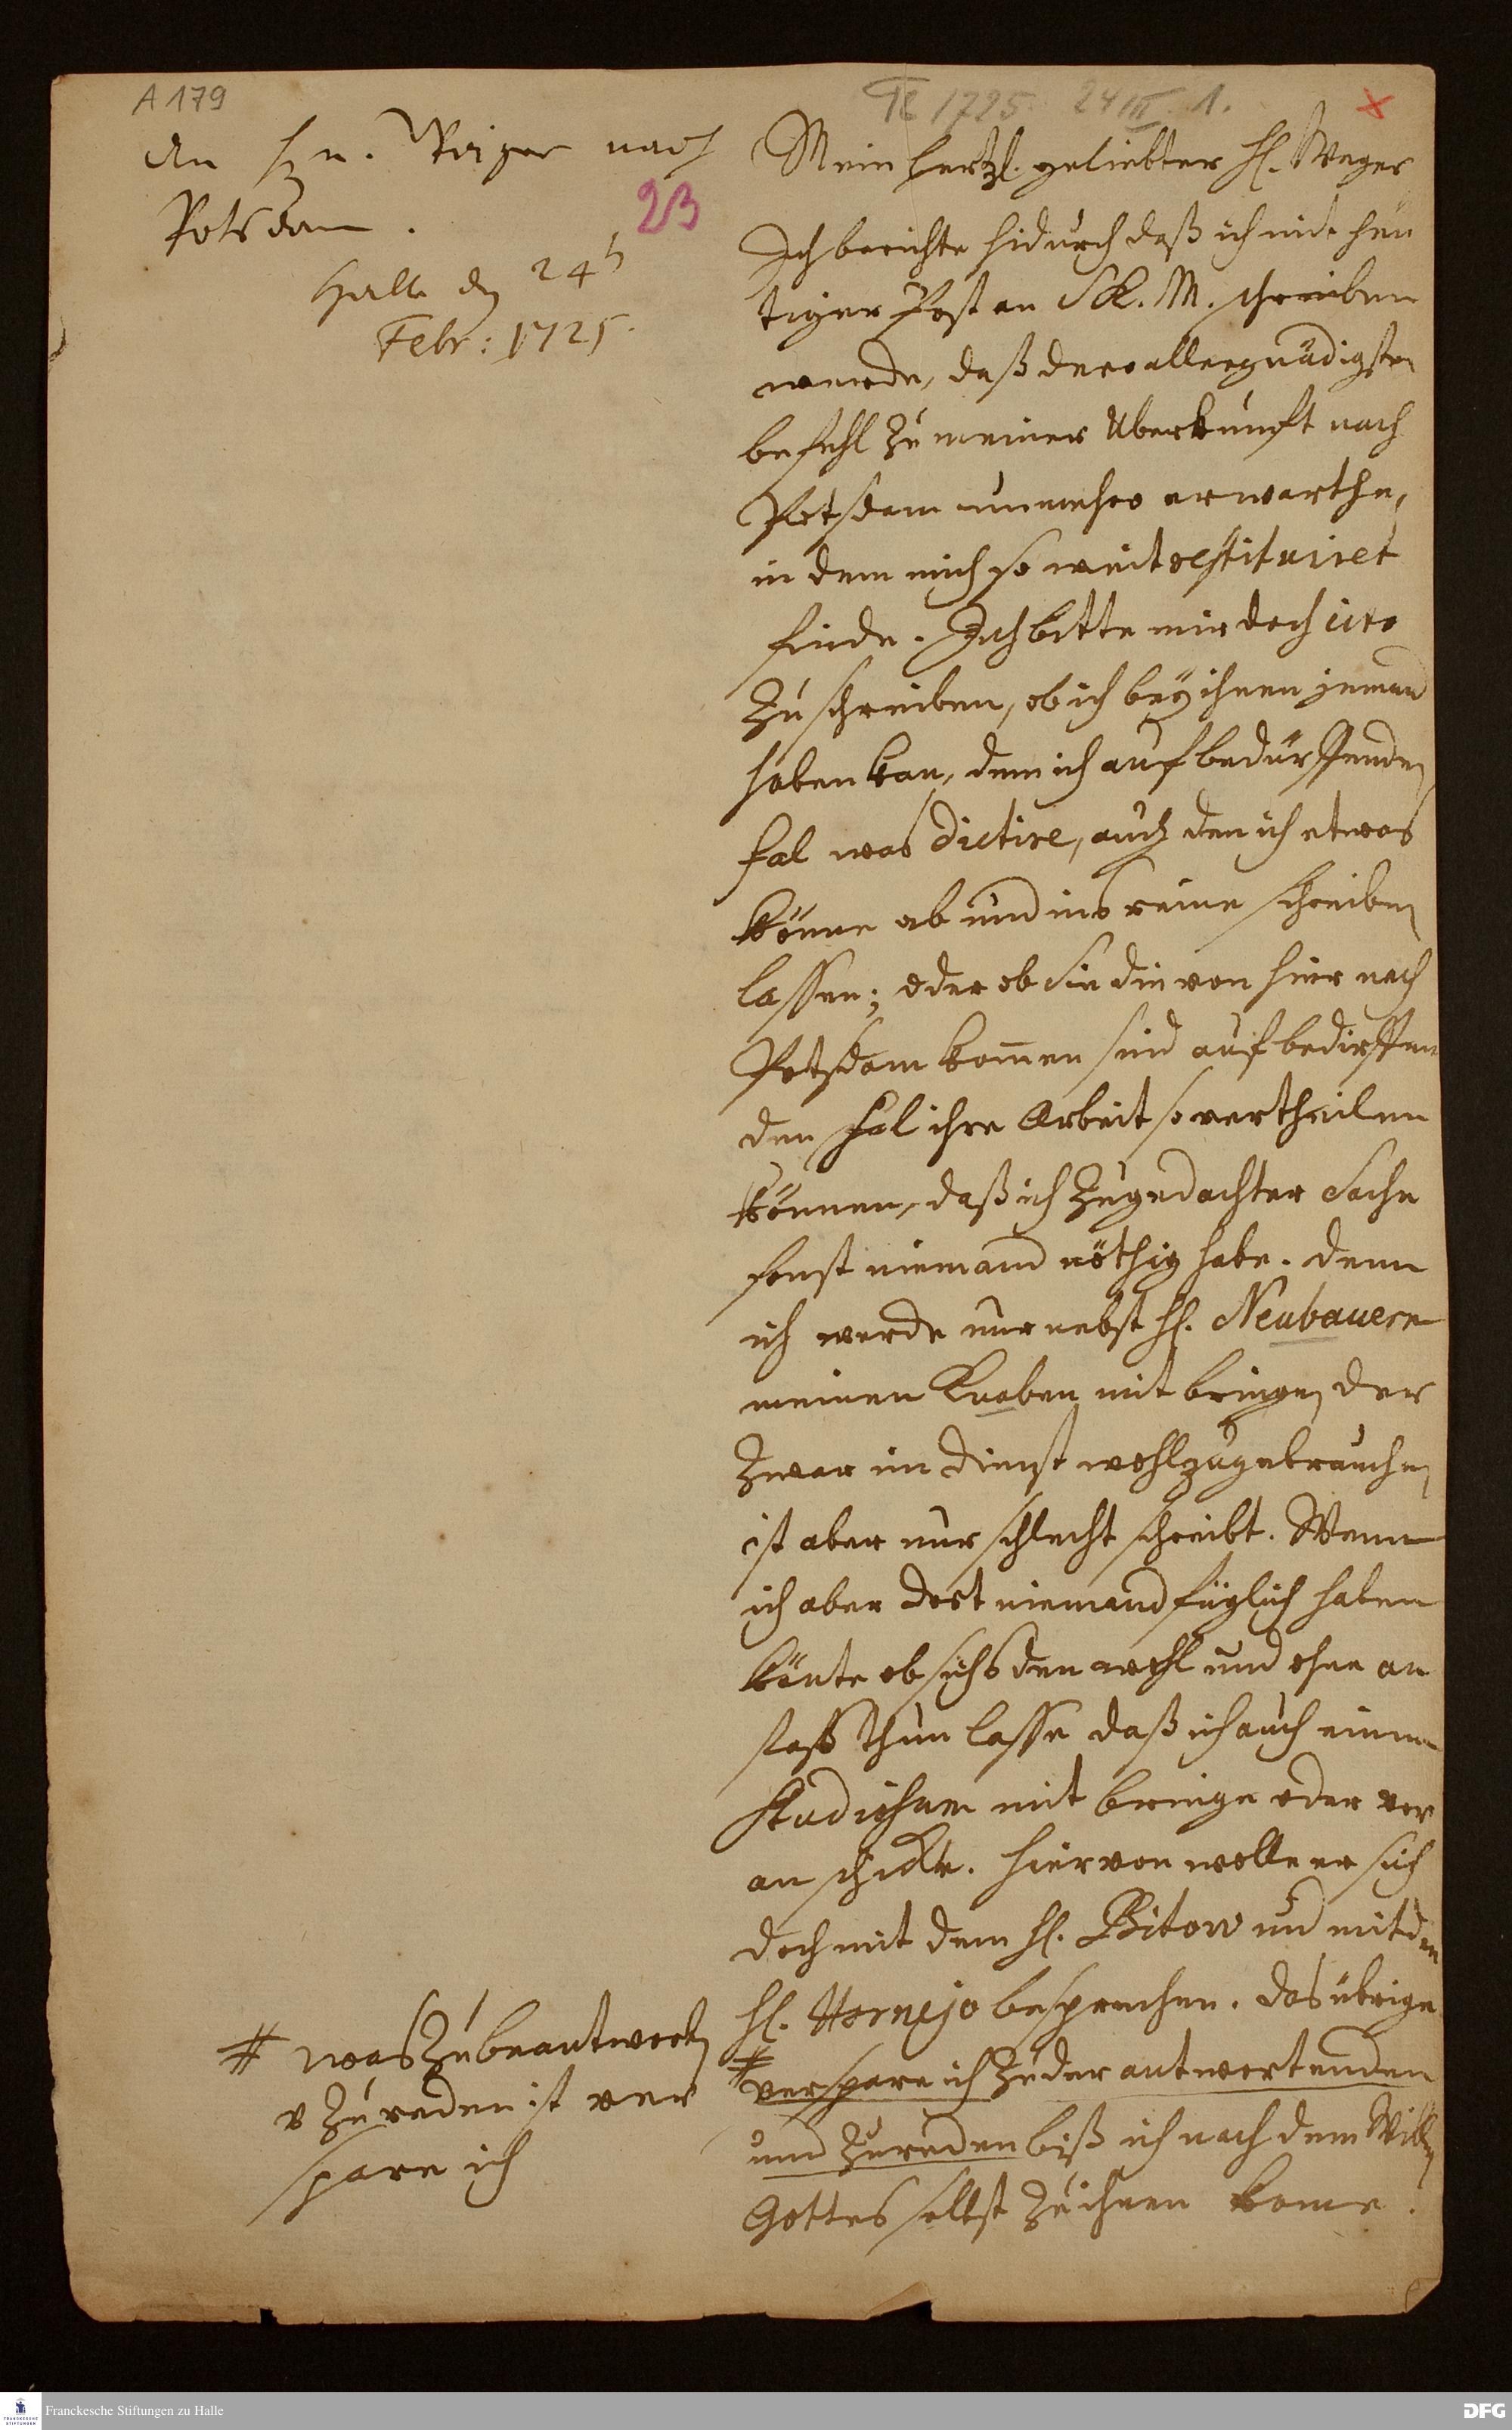 A 179
An Hn. Weiger nach
Potsdam.
23
Halle den 24
Febr: 1725.
1725. 24 III 1.
Mein hertzl. geliebter H. Weger
Ich berichte hidurch daß ich mit heu
tiger Post an S K. M. schreiben
werde, daß dero allergnädigsten
befehl zu meiner Uberkunft nach
Potsdam nunmehro erwarthe,
in dem mich so weit restituiret
finde. Ich bitte mir doch cito
zu schreiben, ob ich bey ihnen jemand
haben kan, dem ich auf bedürffenden
fal was dictire, auch den ich etwas
könne ab und ins reine schreiben
lassen; oder ob Sie die von hier nach
Potsdam kommen sind auf bedürffen
den fal ihre Arbeit so vertheilen
können, daß ich zu gedachter Sache
sonst niemand nöthig habe. denn
ich werde nur nebst H. Neubauern
meinen Knaben mit bringen der
zwar im dienst wohl zu gebrauchen
ist aber nur schlecht schreibt. Wenn
ich aber dort niemand füglich haben
könte ob sichs den wohl und ohne an
stoß thun lasse daß ich auch einen
Studiosum mit bringe oder vor
an schicke. Hiervon wolle er sich
doch mit dem H. Bitow und mit dem
H. Hornejo besprechen. Das übrige
# verspare ich zu der antwortenden
und zu reden biß ich nach dem Willen
Gottes selbst zu ihnen kome.
# was zu beantworten
v zu reden ist ver
spare ich
Franckesche Stiftungen zu Halle
DFG